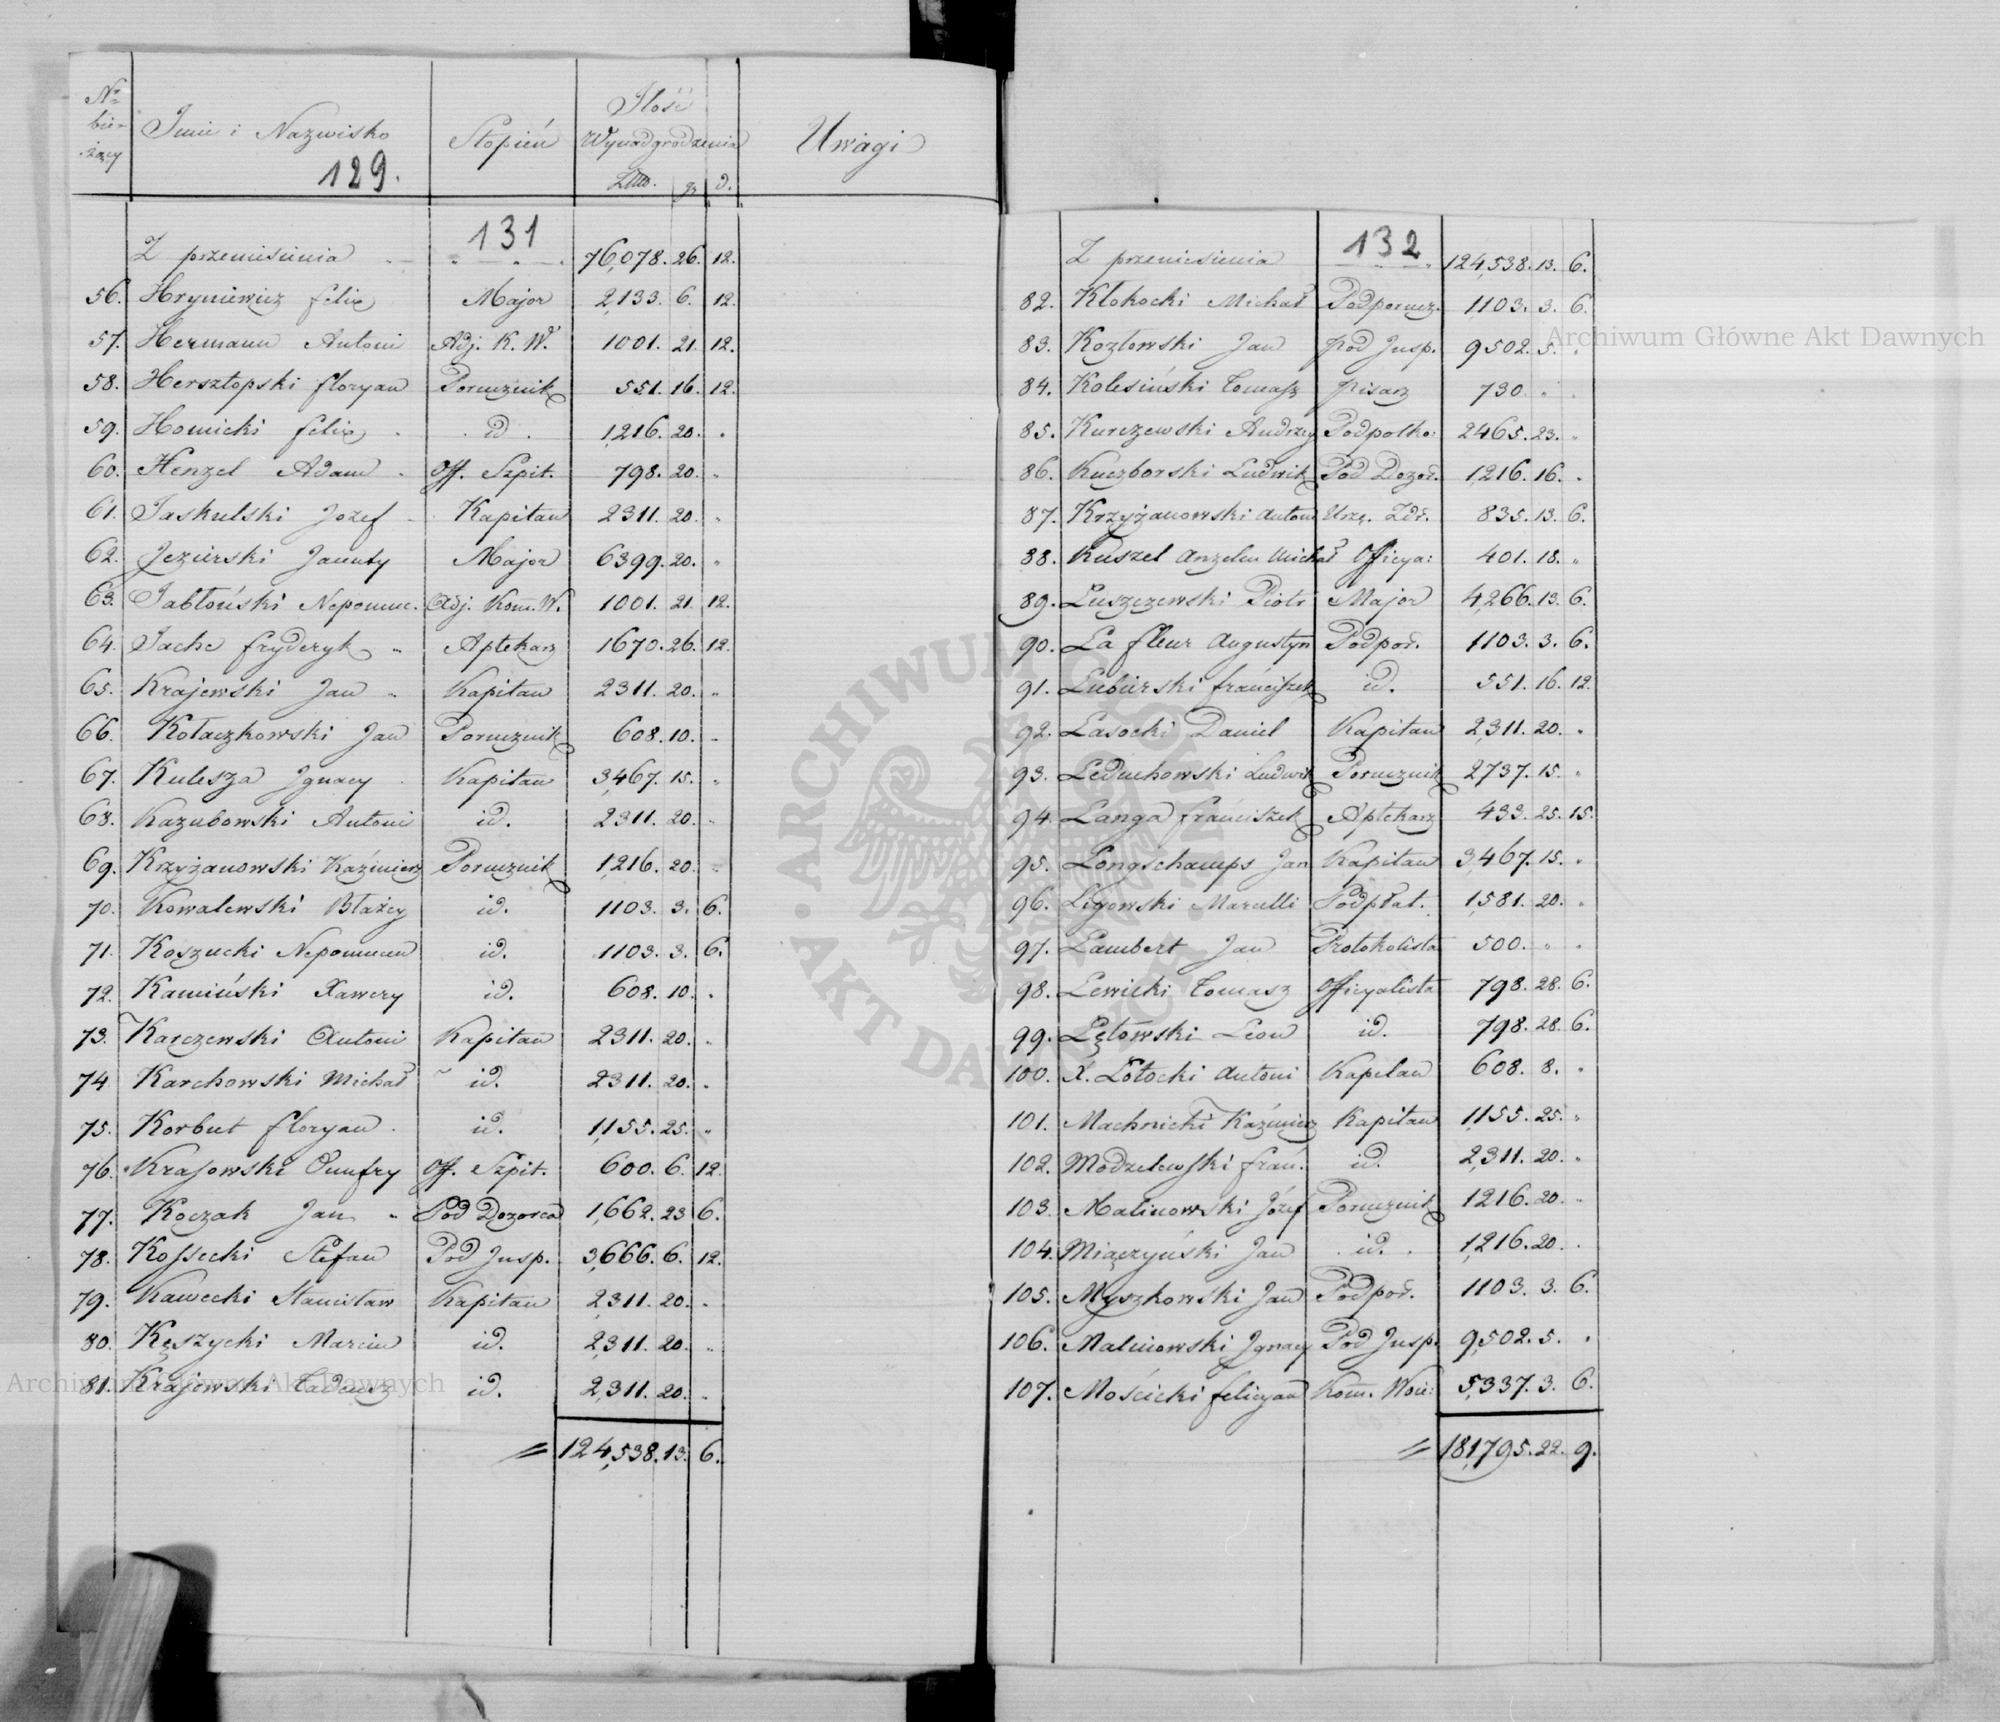 Nr bie- -żący | Imie i Nazwisko | Stopień | Ilość Wynadgrodzenia Złtt. gr d. | Uwagi
129.
131
Z przeniesienia 76,078. 26. 12.
56. Hryniewicz felix Major 2,133. 6. 12.
57. Hermann Antoni Adj. K. W. 1001. 21. 12.
58. Hersztopski floryan Porucznik 551. 16. 12.
59. Homicki felix id. 1,216. 20. „
60. Henzel Adam Off. Szpit. 798. 20. „
61. Jaskulski Jozef Kapitan 2311. 20. „
62. Jezierski Jacenty Major 6399. 20. „
63. Jabłoński Nepomuc. Adj. Kom. W. 1001. 21. 12.
64. Jache fryderyk „ Aptekarz 1670. 26. 12.
65. Krajewski Jan „ Kapitan 2311. 20. „
66. Kołaczkowski Jan Porucznik 608. 10. „
67. Kulesza Ignacy Kapitan 3,467. 15. „
68. Kazubowski Antoni id. 2311. 20. „
69. Krzyżanowski Kaźimierz Porucznik 1,216. 20. „
70. Kowalewski Błażey id. 1103. 3. 6.
71. Koszucki Nepomucen id. 1103. 3. 6.
72. Kamiński Xawery id. 608. 10. „
73. Karczewski Antoni Kapitan 2311. 20. „
74 Karchowski Michał id. 2311. 20. „
75. Korbut floryan id. 1,155. 25. „
76. Krasowski Onufry Off. Szpit. 600. 6. 12.
77. Koczak Jan „ Pod Dozorca 1,662. 23 6.
78. Kossecki Stefan Pod Insp. 3,666. 6. 12.
79. Kawecki Stanisław Kapitan 2,311. 20. „
80. Kęszycki Marcin id. 2,311. 20. „
81. Krajewski Tadeusz id. 2,311. 20. „
= 124,538. 13. 6.
132
Z przeniesienia 124,538. 13. 6.
82. Kłokocki Michał Podporucz. 1103. 3. 6.
83. Kozłowski Jan pod Insp. 9502. 5. „
84. Kolesiński Tomasz pisarz 730. „ „
85. Kurczewski Andrzey Podpołko: 2465. 23. „
86. Kuczborski Ludwik Pod Dozor. 1,216. 16. „
87. Krzyżanowski Antoni Urzę. Zdr. 835. 13. 6.
88. Kuszel Anzelm Michał Officya: 401. 18. „
89. Łuszczewski Piotr Major 4,266. 13. 6.
90. La fleur Augustyn Podpor. 1103. 3. 6.
91. Lubierski franciszek id. 551. 16. 12.
92. Lasocki Daniel Kapitan 2,311. 20. „
93. Leduchowski Ludwik Porucznik 2737. 15. „
94. Langa franciszek Aptekarz 433. 25. 15.
95. Longschamps Jan Kapitan 3,467. 15. „
96. Ligowski Marcelli Podpłat. 1,581. 20. „
97. Lambert Jan Protokolista 500. „ „
98. Lewicki Tomasz Officyalista 798. 28. 6.
99. Łętowski Leon id. 798. 28. 6.
100. X. Łotocki Antoni Kapelan 608. 8. „
101. Machnicki Kaźimierz Kapitan 1,155. 25. „
102. Modzelewski fran. id. 2,311. 20. „
103. Malinowski Józef Porucznik 1216. 20. „
104. Miączyński Jan id. 1,216. 20. „
105. Myszkowski Jan Podpor. 1103. 3. 6.
106. Malinowski Ignacy Pod Insp. 9,502. 5. „
107. Mościcki felicyan Kom. Woie: 5,337. 3. 6.
= 181,795. 22. 9.
Archiwum Główne Akt Dawnych
Archiwum Główne Akt Dawnych
ARCHIWUM GŁÓWNE · AKT DAWNYCH ·